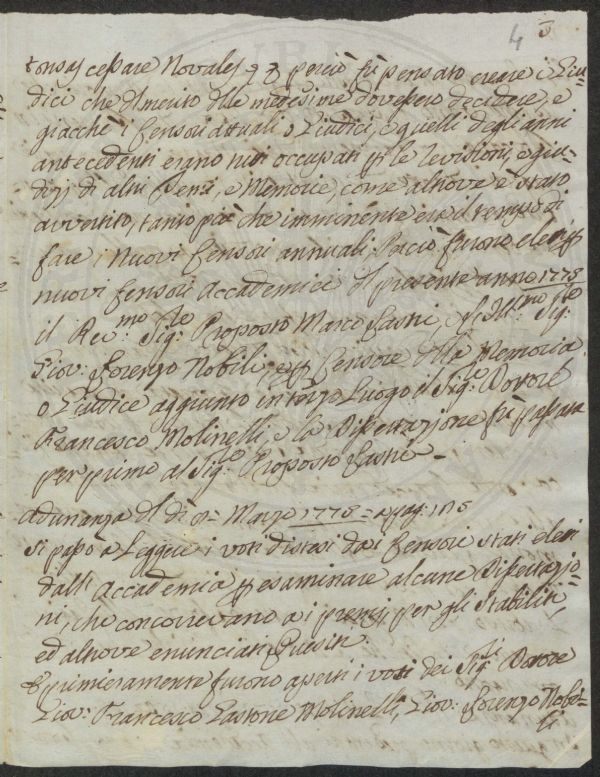 4
cessare Novales perciò fù pensato creare i Giu=
dici che del merito delle medesime dovessero decidere, e
giacchè i Censori attuali o Giudici, e quelli degli anni
antecedenti erano tutti occupati per le Revisioni, e giu=
dizj di altri Temi, e Memorie, come altrove è stato
avvertito, tanto più che imminente era il tempo di
fare i nuovi Censori annuali. Perciò furono eletti per
nuovi Censori Accademici del presente anno 1778
il Rev:mo Sig:re Proposto Marco Lastri, e l'Ill:mo Sig:re
Giov: Lorenzo Nobili, e per Censore della Memoria
o Giudice aggiunto in terzo Luogo il Sig:re Dottore
Francesco Molinelli, e la Dissertazione fù passata
per primo al Sig:re Proposto Lastri -
Adunanza del dì Marzo 1778 = a pag:
Si passò a Leggere i voti distesi dai Censori stati eletti
dall' Accademia per esaminare alcune Dissertazio=
ni, che concorrevano ai premj, per gli Stabiliti
ed altrove enunciati Quesiti.
E primieramente furono aperti i voti dei Sig:ri Dottore
Giov: Francesco Molinelli, Giov: Lorenzo Nobi=
li